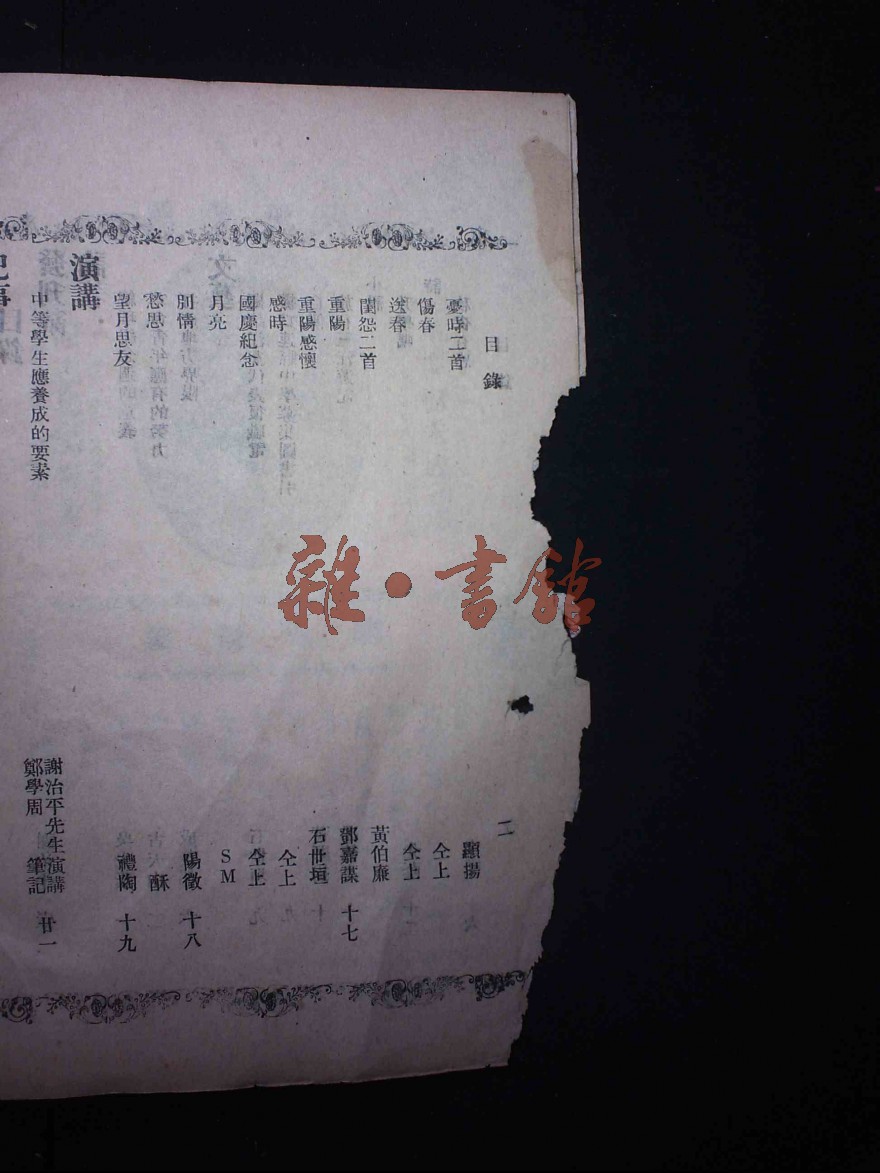 目錄 二
憂時二首 顯揚
傷春 仝上
送春 仝上
閨怨二首 黃伯廉
重陽 鄧嘉謀 十七
重陽感懷 石世垣
感時 仝上
國慶紀念 仝上
月亮 SM
別情 陽徵 十八
愁思 酥
望月思友 禮陶 十九
演講
中等學生應養成的要素 謝治平先生演講 鄭學周 筆記 廿一
雜·書館